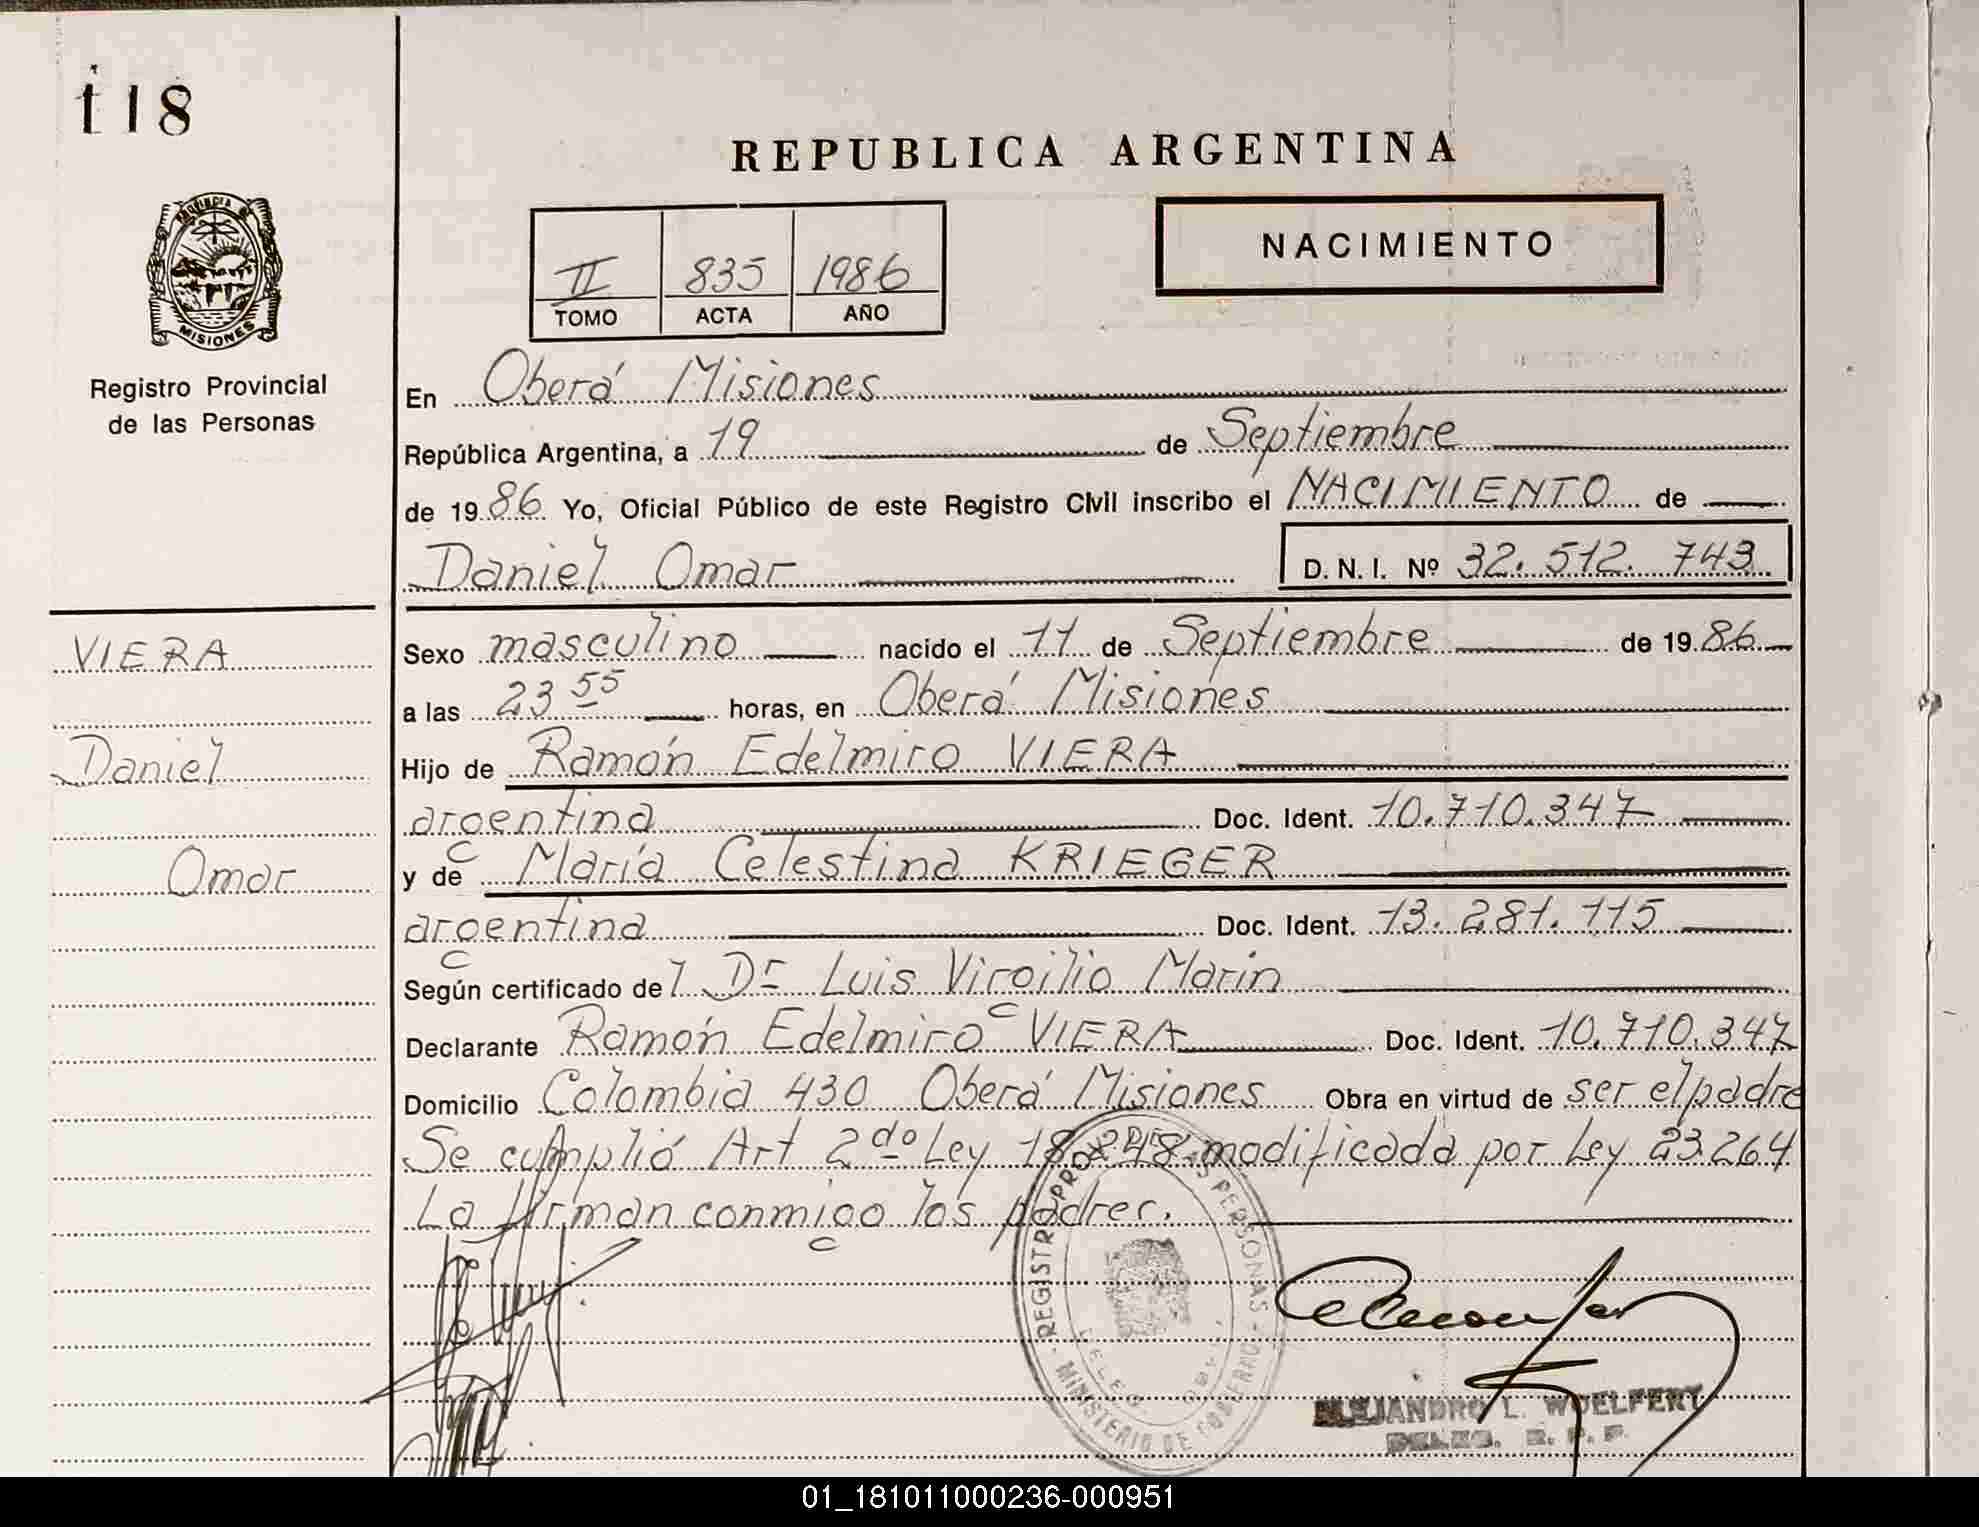 118
REPUBLICA ARGENTINA
PROVINCIA DE
MISIONES
Registro Provincial
de las Personas
II 835 1986
TOMO ACTA AÑO
NACIMIENTO
En Oberá Misiones
República Argentina, a 19 de Septiembre
de 1986 Yo, Oficial Público de este Registro Civil inscribo el NACIMIENTO de
Daniel Omar D. N. I. Nº 32.512.743
VIERA
Daniel
Omar
Sexo masculino nacido el 11 de Septiembre de 1986
a las 23 55 horas, en Oberá Misiones
Hijo de Ramón Edelmiro VIERA
argentina Doc. Ident. 10.710.347
y de María Celestina KRIEGER
argentina Doc. Ident. 13.281.115
Según certificado del Dr Luis Virgilio Marin
Declarante Ramón Edelmiro VIERA Doc. Ident. 10.710.347
Domicilio Colombia 430 Oberá Misiones Obra en virtud de ser el padre
Se cumplió Art 2do Ley 18.248 modificada por Ley 23.264
La firman conmigo los padres.
REGISTRO PROV. DE LAS PERSONAS
MINISTERIO DE GOBIERNO
ALEJANDRO L. WOELFERT
01_181011000236-000951